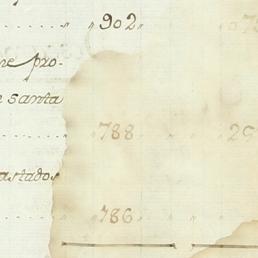 902
ne pro-
santa
788
astados
786